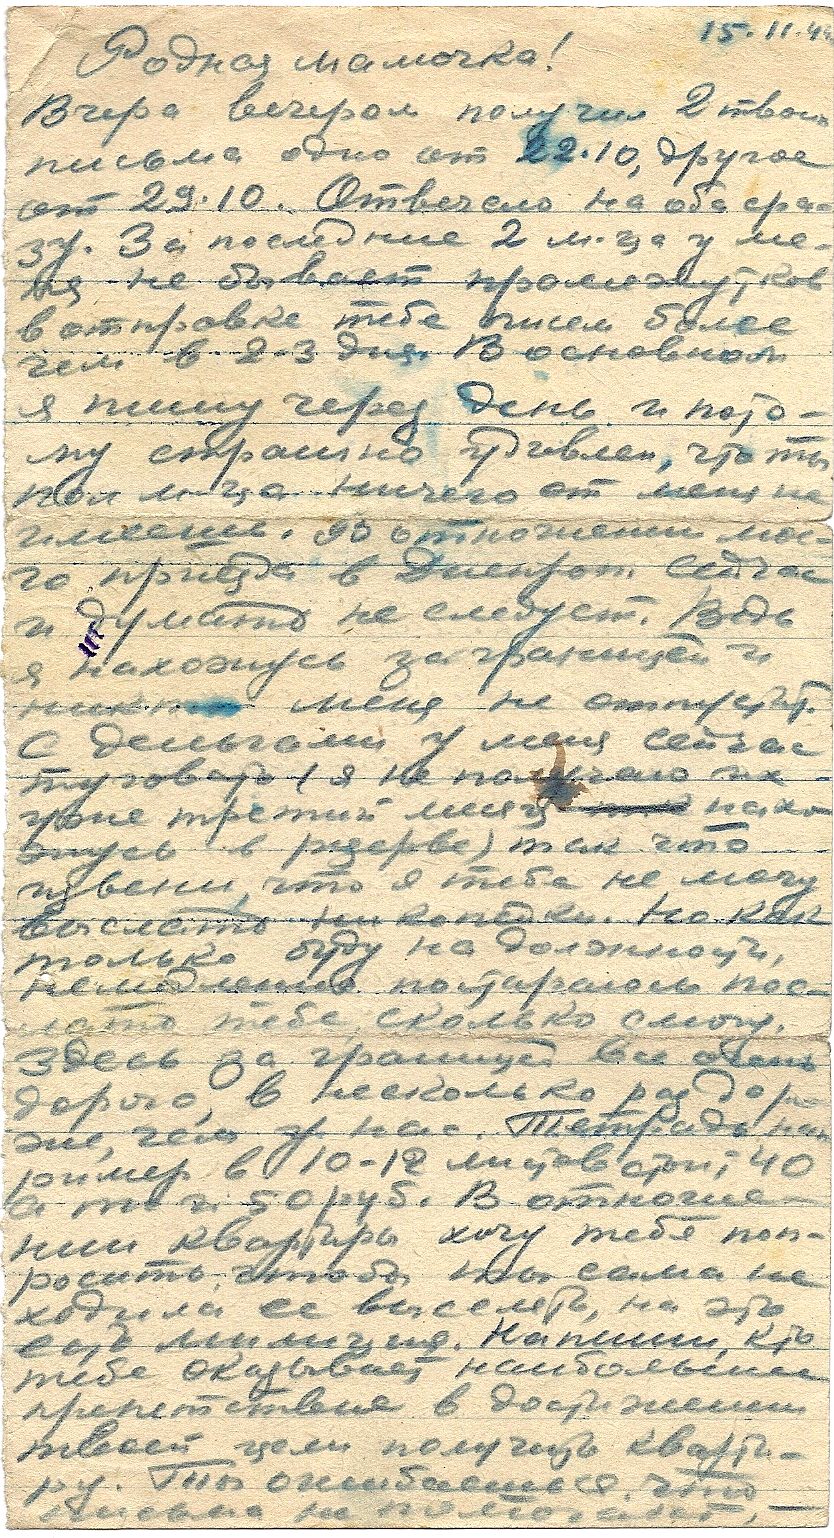 15.11.44
Родная мамочка!
Вчера вечером получил 2 твоих
письма одно от 22.10, другое
от 29.10. Отвечаю на оба сра-
зу. За последние 2 м-ца у ме-
ня не бывает промежутков
в отправке тебе писем более
чем в 2-3 дня. В основном
я пишу через день и пото-
му страшно удивлен, что ты
пол м-ца ничего от меня не
имеешь. В отношении мое-
го приезда в Днепроп. сейчас
и думать не следует. Ведь
я нахожусь заграницей и
меня не отпустит.
С деньгами у меня сейчас
туговато (я не получаю их
уже третий месяц нахо-
жусь в резерве) так что
извени, что я тебе не могу
выслать ни копейки. Но как
только буду на должности,
немедленно постараюсь пос-
лать тебе, сколько смогу.
Здесь за границей все очень
дорого, в несколько раз доро-
же, чем у нас. Тетрадь нап-
ример в 10-12 листов стоит 40
а то и 50 руб. В отноше-
нии квартиры хочу тебя поп-
росить, чтобы ты сама не
ходила ее выселять, на это
есть милиция. Напиши, кто
тебе оказывает наибольшее
препятствие в достижении
твоей цели получить кварти-
ру. Ты ошибаешься, что
письма не помогают, —